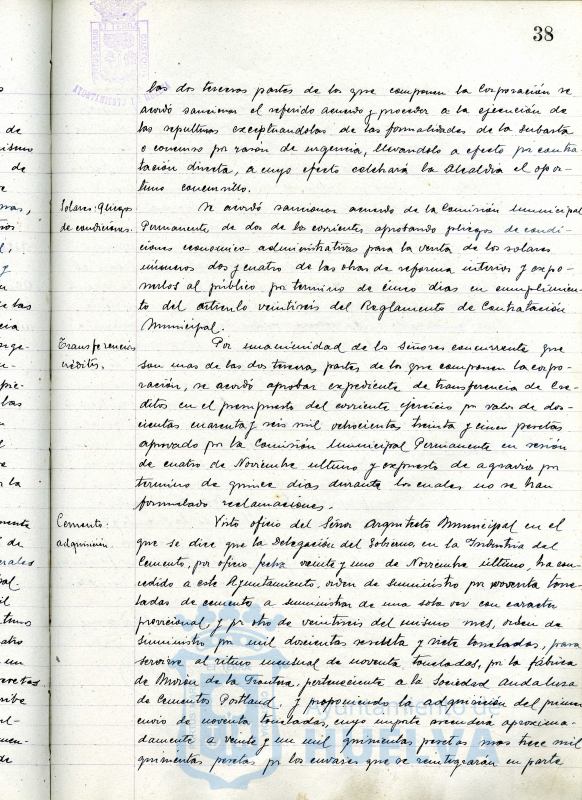 38
las dos terceras partes de los que componen la Corporación se
acordó sancionar el referido acuerdo y proceder a la ejecución de
las sepulturas exceptuandolas de las formalidades de la subasta
o concurso por razón de urgencia, llevándolo a efecto por contra
tación directa, a cuyo efecto celebrará la Alcaldia el opor-
tuno concursillo.
Solares: Pliegos
de condiciones.
Se acordó sancionar acuerdo de la Comisión Municipal
Permanente de dos de los corrientes aprobando pliegos de condi-
ciones economico-administrativas para la venta de los solares
números dos y cuatro de las obras de reforma interior y expo-
nerlos al público por termino de cinco dias en cumplimien-
to del articulo veintiseis del Reglamento de Contratación
Municipal.
Transferencias
créditos.
Por unanimidad de los Señores concurrente que
son mas de las dos terceras partes de los que componen la corpo-
ración, se acordó aprobar expediente de transferencia de Cre-
ditos en el presupuesto del corriente ejercicio por valor de dos-
cientas cuarenta y seis mil ochocientas treinta y cinco pesetas
aprovado por la Comisión Municipal Permanente en sesión
de cuatro de Noviembre ultimo y expuesto de agravios por
termino de quince dias durante los cuales no se han
formulado reclamaciones.
Cemento:
adquisición.
Visto oficio del Señor Arquitecto Municipal en el
que se dice que la Delegación del Gobierno en la Industria del
Cemento, por oficio fecha veinte y uno de Noviembre último, ha con-
cedido a este Ayuntamiento, orden de suministro por noventa tone-
ladas de cemento a suministrar de una sola vez con caracter
provisional, y por otro de veintiseis del mismo mes, orden de
suministro por mil doscientas sesenta y siete toneladas, para
servirse al ritmo mensual de noventa toneladas, por la fábrica
de Morón de la Frontera, perteneciente a la Sociedad Andaluza
de Cementos Portland, y proponiendo la adquisición del primer
envio de noventa toneladas, cuyo importe ascenderá aproxima-
damente a veinte y un mil quinientas pesetas mas trece mil
quinientas pesetas por los envases que se reintegrarán en parte
Ayuntamiento de
HUELVA